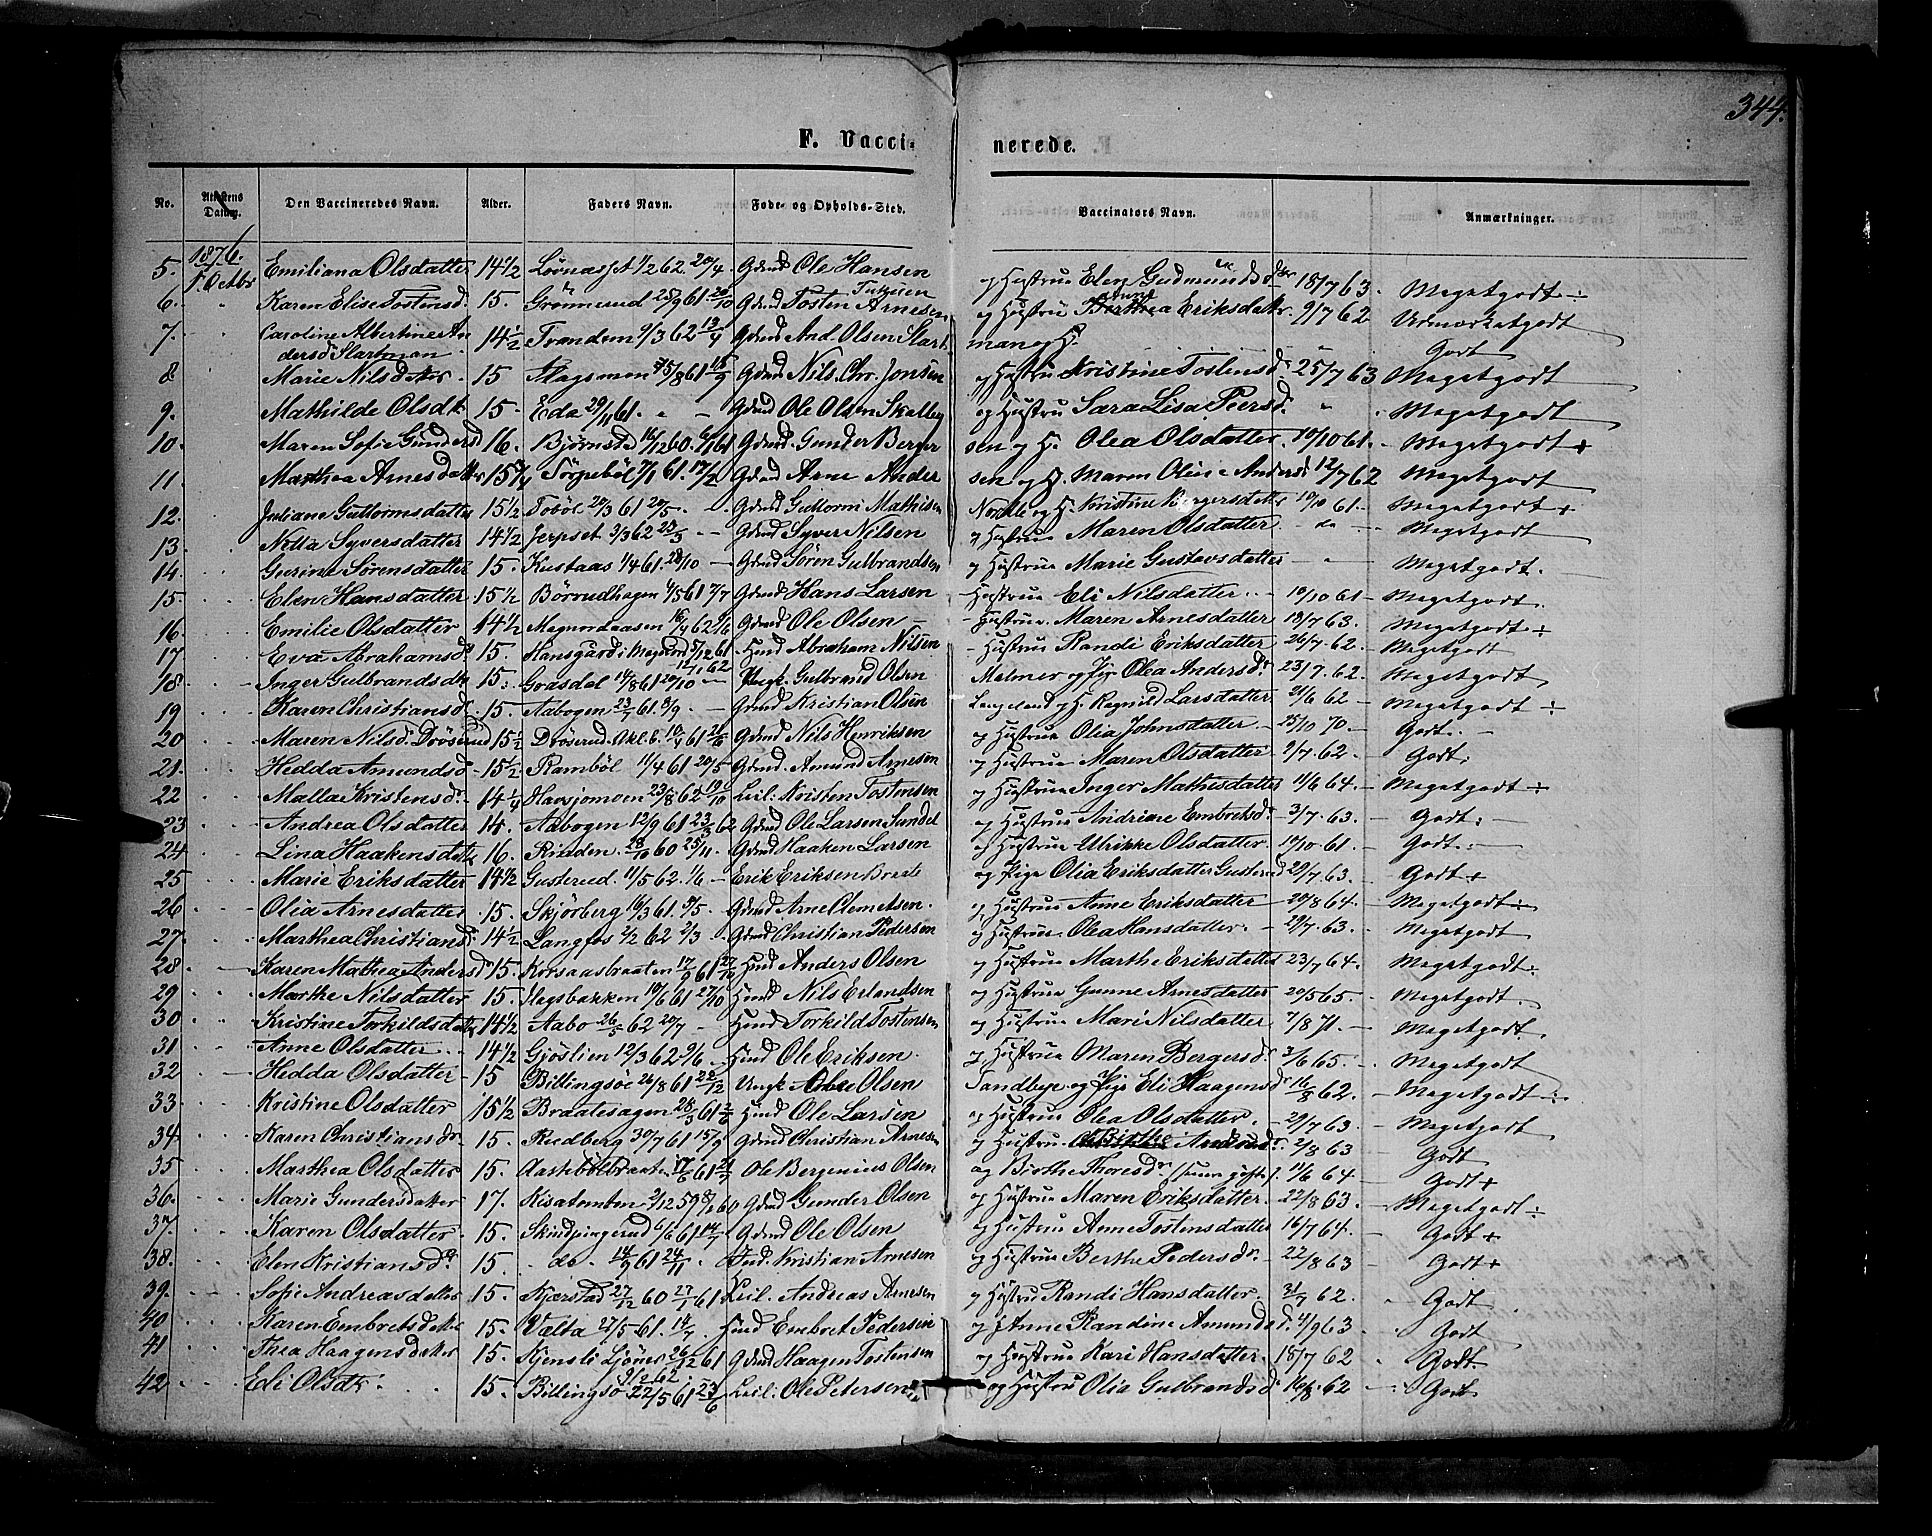 344.
F. Vaccinerede.
No. Attestens Datum. Den Vaccineredes Navn. Alder. Faders Navn. Føde- og Opholds-Sted. Vaccinators Navn. Anmærkninger.
1876.
5. 1. Octbr Emiliana Olsdatter 14 1/2 1/2 62. 20/4. Gdmd Ole Hansen og Hustrue Elen Gudmundsdtr 18/7 63. Megetgodt ÷
6. Karen Elise Tostensd. 15. Grønnerud 25/9 61 Gdmd Tosten Arnesen og Hustru Eriksdattr. 9/7 62 Udmærketgodt
7. Caroline Albertine An
dersd. Slartman 14 1/2 Tranden 9/3 62 Gdmd And. Olsen Slart
man og H. Godt
8 Marie Nilsdatter 15 61 Gdmd Nils Chr. Jonsen og Hustru Kristine Tostensdr 25/7 63 Megetgodt
9. Mathilde Olsdtr 15. Eda 29/11 61. Gdmd Ole Olsen Skalberg og Hustru Sara Lisa Peersd. Megetgodt
10. Maren Sofie Gundersd 16. Bjørnstad 16/12 60. Gdmd. Gunder Berger
sen og H. Olea Olsdatter. 19/10 61. Megetgodt +
11. Marthea Arnesdatter 15 3/4 61. 17/2 Gdmd Arne Ander
sen og H. Maren Oline Andersd 12/7 62 Megetgodt
12. Juliane Guttormsdatter 15 1/2 Tobøl 20/3 61 20/5 Gdmd Guttorm Mathisen og H. Kristine Bergersdatter 19/10 61. Megetgodt +
13. Netta Syversdatter 14 1/2 Jerpset 3/3 62 Gdmd Syver Nilsen og Hustrue Maren Olsdatter Megetgodt
14. Gurine Sørensdatter 15. Kustaas 1/4 61. Gdmd Søren Gulbrandsen og Hustrue Marie Gustavsdatter Megetgodt.
15 Elen Hansdatter 15 1/2 Børrudhagen 4/5 61 7/7 Gdmd Hans Larsen Hustrue Eli Nilsdatter 19/10 61 Megetgodt.
16. Emilie Olsdatter 14 1/2 Magnordaasen 62 Gdmd Ole Olsen Hustrue Maren Arnesdatter 18/7 63. Megetgodt ÷
17 Eva Abrahamsdr 15. Hansgård i Magnord 5/12 61 Hmd Abraham Nilsen Hustrue Randi Eriksdatter 26/7. 62. Megetgodt
18 Inger Gulbrandsdtr 15. Grasdal 14/8 61 20/10 Ungk. Gulbrand Olsen Melmer og Pige Olea Andersdr 23/7. 62. Megetgodt
19 Karen Christiansdr 15. Aabogen 61. 8/9. Gdmd Kristian Olsen og H. Ragnild Larsdatter 21/6 62 Megetgodt ÷
20 Maren Nilsd. Drøserud 15 1/2 Drøserud 61 Gdmd Nils Henriksen og Hustrue Olia Johnsdatter 25/10 70. Godt.
21. Hedda Amundsd 15 1/2 Rambøl 11/4 61 20/5 Gdmd. Amund Arnesen og Hustrue Maren Olsdatter 2/7. 62. Godt.
22 Malla Kristensdr. 14 1/4 Havsjomoen 23/8 62 19/10 Leil. Kristen Tostensen og Hustrue Inger Mathisdatter 11/6 64. Megetgodt ÷
23 Andrea Olsdatter 14. Aabogen 12/9 61 62 Gdmd Ole Larsen Sundet og Hustrue Andriane Embretsdr 3/7. 63. Godt.
24 Lina Haakensdattr 16. Rudden 28/10 60 25/11. Gdmd Haaken Larsen og Hustrue Ulrikke Olsdatter. 19/10 61. Godt.
25 Marie Eriksdatter 14 1/2 Gusterud. 11/5 62. 1/6 Erik Eriksen Braate og Pige Olia Eriksdatter Gusterud 29/7. 63. Godt +
26 Olia Arnesdatter 15. Skjørberg 16/3 61. 9/5. Gdmd Arne Clemetsen. og Hustrue Anne Eriksdatter 20/8 64. Megetgodt ÷
27. Marthea Christiansdr 14 1/2 Langfos 2/2 62 2/3 Gdmd Christian Pedersen og Hustrue Olea Hansdatter. 29/7. 63. Megetgodt
28. Karen Mathea Andersdr 15. Korsaasbraaten 17/9 61 27/10 Hmd Anders Olsen og Hustrue Marthe Eriksdatter 23/7 64. Megetgodt.
29 Marthe Nilsdatter 15. Hagsbakken 19/6 61 27/10 Hmd Nils Erlandsen og Hustrue Gunne Arnesdatter 20/5 65. Megetgodt.
30 Kristine Torkildsdatter 14 1/2 Aabo 26/5 62 20/7 Hmd Torkild Tostensen og Hustrue Mari Nilsdatter 7/8 71. Megetgodt
31 Anne Olsdatter 14 1/2 Gjøslien 12/3 62 9/6. Hmd Ole Eriksen. og Hustrue Maren Bergersdr 3/6 65. Megetgodt
32 Hedda Olsdatter 15 Billingsöe 26/8 61 Ungk Olsen Sandbye og Pige Eli Haagensdr 16/8 62. Megetgodt ÷
33. Kristine Olsdatter 15 1/2 Braatesagen 28/3 61 Hmd Ole Larsen og Hustrue Olea Olsdatter. 29/7 63. Megetgodt
34 Karen Christiansdr 15. Rudberg 30/7 61 15/9 Gdmd Christian Arnesen og Hustru. 2/8 63 Godt
35 Marthea Olsdatter 15. 61 Ole Bergenius Olsen og Birthe Thoresdr 11/6 64 Godt +
36. Marie Gundersdatter 17. Kisatomten 2/12 59 60 Gdmd Gunder Olsen og Hustrue Maren Eriksdatter. 22/8 63. Megetgodt ÷
37. Karen Olsdatter 15. 6/6 61 14/7 Gdmd Ole Olsen og Hustrue Anne Tostensdatter 16/7 64. Godt +
38. Elen Kristiansdr. 15. do. 14/9 61 24/11 Ind. Kristian Arnesen og Hustrue Berthe Pedersdr 22/8 63 Godt +
39. Sofi Andreasdatter 15. Kjærstad 27/12 60 27/1 61 Leil. Andreas Arnesen og Hustru Randi Hansdatter. 31/7 62. Godt
40 Karen Embretsdatter 15. Välta 27/5 61. 14/7. Hmd Embret Pedersen og Anne Randine Amundsd. 4/9 63 Godt
41 Thea Haagensdatter 15. Kjensli Ljöner 26/12 61 Gdmd Haagen Tostensen og Hustrue Kari Hansdatter. 15/7 62 Godt
42 Eli Olsdtr. 15. Billingsö 22/5 61 23/6 Leil. Ole Petersen og Hustru Olia Gulbrandsd. 16/8. 62 Godt